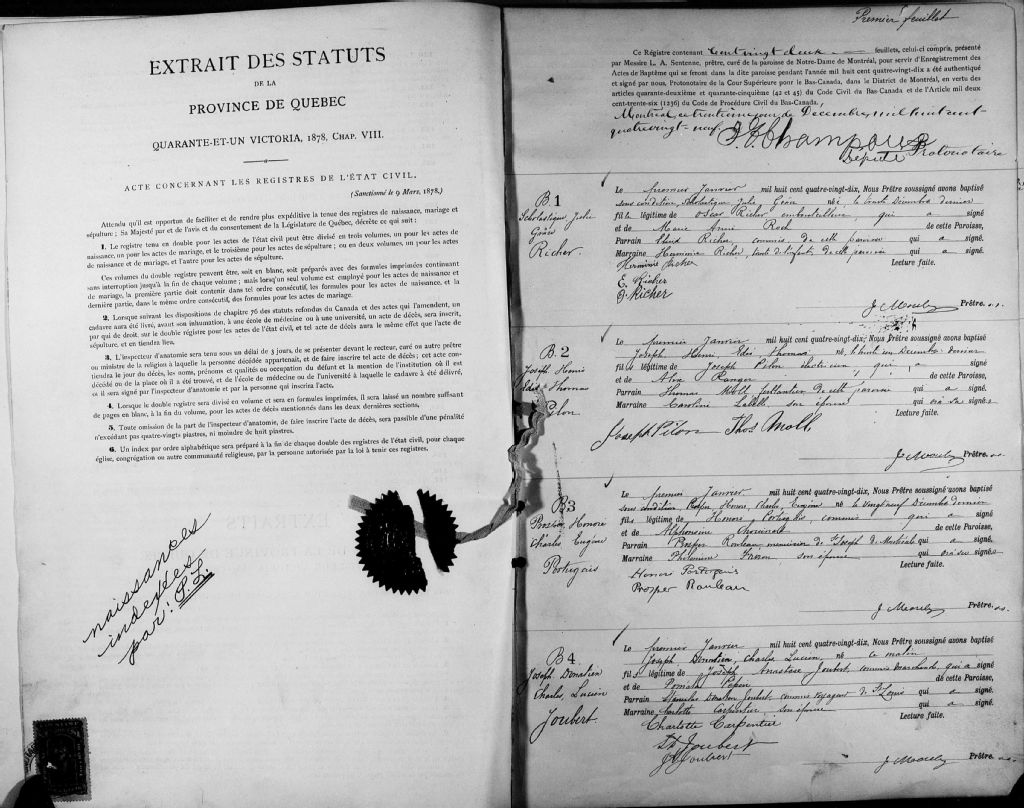 EXTRAIT DES STATUTS
DE LA
PROVINCE DE QUEBEC
QUARANTE-ET-UN VICTORIA, 1878, CHAP. VIII.
ACTE CONCERNANT LES REGISTRES DE L'ÉTAT CIVIL.
(Sanctionné le 9 Mars, 1878.)
Attendu qu'il est opportun de faciliter et de rendre plus expéditive la tenue des registres de naissance, mariage et
sépulture ; Sa Majesté par et de l'avis et du consentement de la Législature de Québec, décrète ce qui suit :
1. Le registre tenu en double pour les actes de l'état civil peut être divisé en trois volumes, un pour les actes de
naissance, un pour les actes de mariage, et le troisième pour les actes de sépulture ; ou en deux volumes, un pour les actes
de naissance et de mariage, et l'autre pour les actes de sépulture.
Ces volumes du double registre peuvent être, soit en blanc, soit préparés avec des formules imprimées continuant
sans interruption jusqu'à la fin de chaque volume ; mais lorsqu'un seul volume est employé pour les actes de naissance et
de mariage, la première partie doit contenir dans tel ordre consécutif, les formules pour les actes de naissance, et la
dernière partie, dans le même ordre consécutif, des formules pour les actes de mariage.
2. Lorsque suivant les dispositions de chapitre 76 des statuts refondus du Canada et des actes qui l'amendent, un
cadavre aura été livré, avant son inhumation, à une école de médecine ou à une université, un acte de décès, sera inscrit,
par qui de droit, sur le double registre pour les actes de l'état civil, et tel acte de décès aura le même effet que l'acte de
sépulture, et en tiendra lieu.
3. L'inspecteur d'anatomie sera tenu sous un délai de 3 jours, de se présenter devant le recteur, curé ou autre prêtre
ou ministre de la religion à laquelle la personne décédée appartenait, et de faire inscrire tel acte de décès ; cet acte con-
tiendra le jour du décès, les noms, prénoms et qualités ou occupation du défunt et la mention de l'institution où il est
décédé ou de la place où il a été trouvé, et de l'école de médecine ou de l'université à laquelle le cadavre a été délivré,
et il sera signé par l'inspecteur d'anatomie et par la personne qui inscrira l'acte.
4. Lorsque le double registre sera divisé en volume et sera en formules imprimées, il sera laissé un nombre suffisant
de pages en blanc, à la fin du volume, pour les actes de décès mentionnés dans les deux dernières sections.
5. Toute omission de la part de l'inspecteur d'anatomie, de faire inscrire l'acte de décès, sera passible d'une pénalité
n'excédant pas quatre-vingts piastres, ni moindre de huit piastres.
6. Un index par ordre alphabétique sera préparé à la fin de chaque double des registres de l'état civil, pour chaque
église, congrégation ou autre communauté religieuse, par la personne autorisée par la loi à tenir ces registres.
naissances
indexées
par: P. L.
Premier feuillet
Ce Régistre contenant Cent vingt deux feuillets, celui-ci compris, présenté
par Messire L. A. Sentenne, prêtre, curé de la paroisse de Notre-Dame de Montréal, pour servir d'Enregistrement des
Actes de Baptême qui se feront dans la dite paroisse pendant l'année mil huit cent quatre-vingt-dix a été authentiqué
et signé par nous, Protonotaire de la Cour Supérieure pour le Bas-Canada, dans le District de Montréal, en vertu des
articles quarante-deuxième et quarante-cinquième (42 et 45) du Code Civil du Bas-Canada et de l'Article mil deux
cent-trente-six (1236) du Code de Procédure Civil du Bas-Canada.
Montréal, ce trentième jour de Décembre, mil huit cent-
quatrevingt-neuf
Député Protonotaire
B 1
Scholastique, Julie
Richer.
Le premier Janvier mil huit cent quatre-vingt-dix, Nous Prêtre soussigné avons baptisé
sous condition, Scholastique Julie née, le trente Décembre dernier
fille légitime de Oscar Richer embouteilleur, qui a signé
et de Marie Anne Rock de cette Paroisse,
Parrain Richer, commis de cette paroisse qui a signé.
Marraine Herminie Richer, tante de l'enfant, de cette paroisse qui a signé.
Lecture faite.
Herminie Richer
E. Richer
O. Richer
Prêtre. s.s.
B. 2
Joseph Henri
Thomas
Pilon
Le premier Janvier mil huit cent quatre-vingt-dix, Nous Prêtre soussigné avons baptisé
Joseph Henri Thomas né, le trente un Décembre dernier
fils légitime de Joseph Pilon qui a signé
et de Alva Ranger de cette Paroisse,
Parrain Thomas Moll ferblantier de cette paroisse qui a signé.
Marraine Caroline Labelle son épouse qui
Lecture faite.
Joseph Pilon Thos Moll
Prêtre. s.s.
B3
Prosper, Honoré
Charles Eugène
Portugais
Le premier Janvier mil huit cent quatre-vingt-dix, Nous Prêtre soussigné avons baptisé
sous condition, Prosper, Honoré, Charles, Eugène né le vingt neuf Décembre dernier
fils légitime de Honoré Portugais, commis, qui a signé
et de Alphonsine Chouinard de cette Paroisse,
Parrain Prosper Rouleau menuisier de St Joseph de Montréal qui a signé.
Marraine Philomène son épouse qui
Lecture faite.
Honoré Portugais
Prosper Rouleau
Prêtre. s.s.
B4
Joseph Donatien
Charles, Lucien
Joubert.
Le premier Janvier mil huit cent quatre-vingt-dix, Nous Prêtre soussigné avons baptisé
Joseph Donatien, Charles, Lucien, né ce matin
fils légitime de Joseph Anastase Joubert, commis marchand, qui a signé
et de Pepin de cette Paroisse,
Parrain Stanislas Donatien Joubert, commis voyageur de St Louis qui a signé.
Marraine Charlotte Carpentier, son épouse qui a signé.
Lecture faite.
Charlotte Carpentier
St. Joubert
Joubert
Prêtre. s.s.